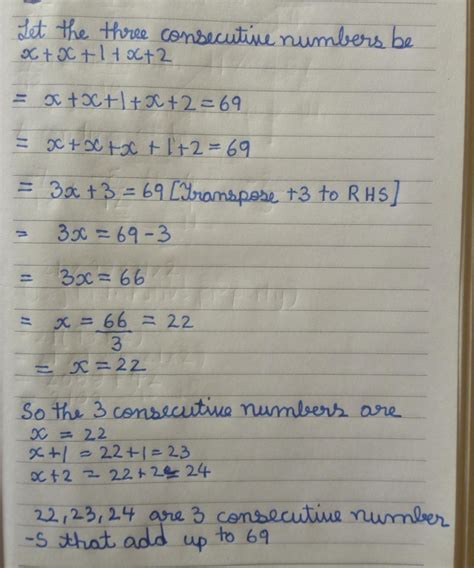 Let the three consecutive numbers be
x+x+1+x+2
= x+x+1+x+2=69
= x+x+x+1+2=69
= 3x+3=69 [Transpose +3 to RHS]
= 3x=69-3
= 3x=66
= x=66/3=22
= x=22
So the 3 consecutive numbers are
x = 22
x+1 = 22+1=23
x+2 = 22+2=24
22,23,24 are 3 consecutive number
-s that add up to 69